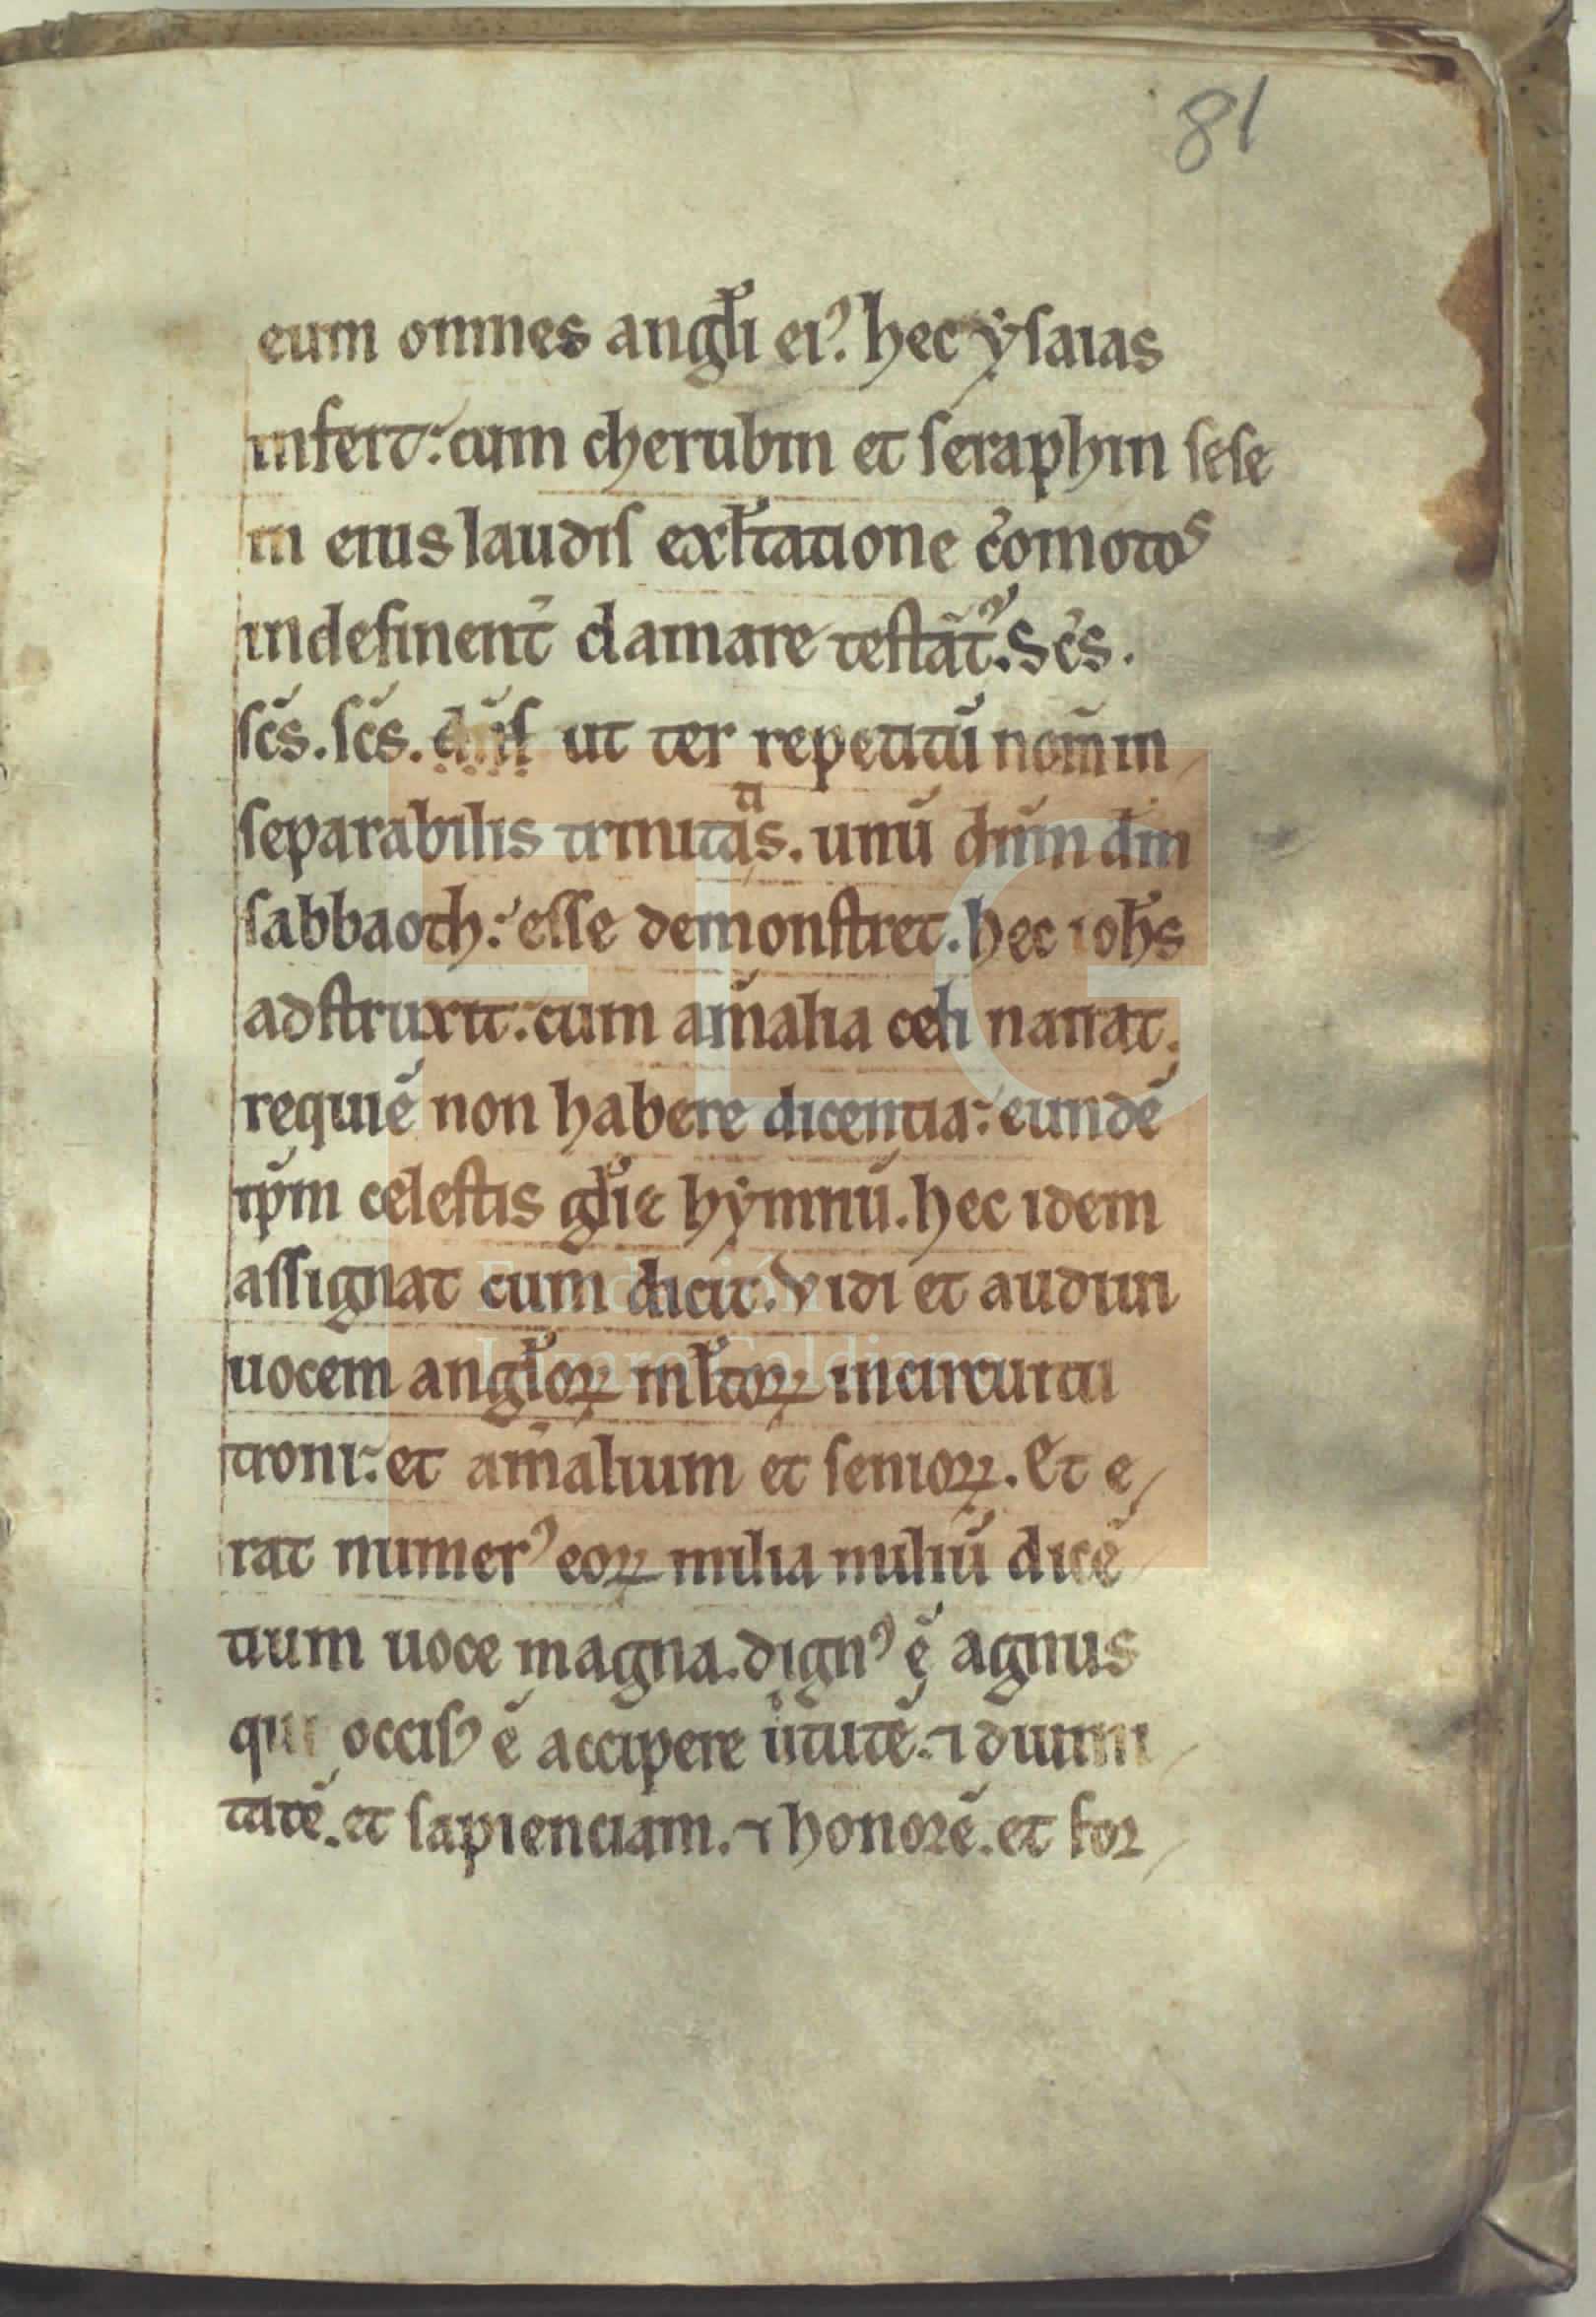 81
eum omnes angl̃i ei⁹. hec ẏsaias
infert: cum cherubin et seraphin sese
in eius laudis exl̃tatione c̃omotos
indesinent̃ clamare testãt᷑. Sc̃s.
sc̃s. sc̃s. dñs ut ter repetitũ nom̃ in
separabilis trinitatis. unũ dñm dm̃
sabbaoth: esse demonstret. hec ioh̃s
adstruxit: cum am̃alia celi narrat.
requiẽ non habere dicentia: eundẽ
ip̃m celestis gl̃ie hẏmnũ. hec idem
assignat cum dicit. Vidi et audiui
uocem angl̃oꝝ ml̃toꝝ in circuitu
troni: et am̃alium et senioꝝ. Et e
rat numer⁹ eoꝝ milia miliũ dicẽ
tium uoce magna. dign⁹ ẽ agnus
qui occis⁹ ẽ accipere uⁱtutẽ. ⁊ diuini
tatẽ. et sapienciam. ⁊ honorẽ. et for
Fundación
Lázaro Galdiano